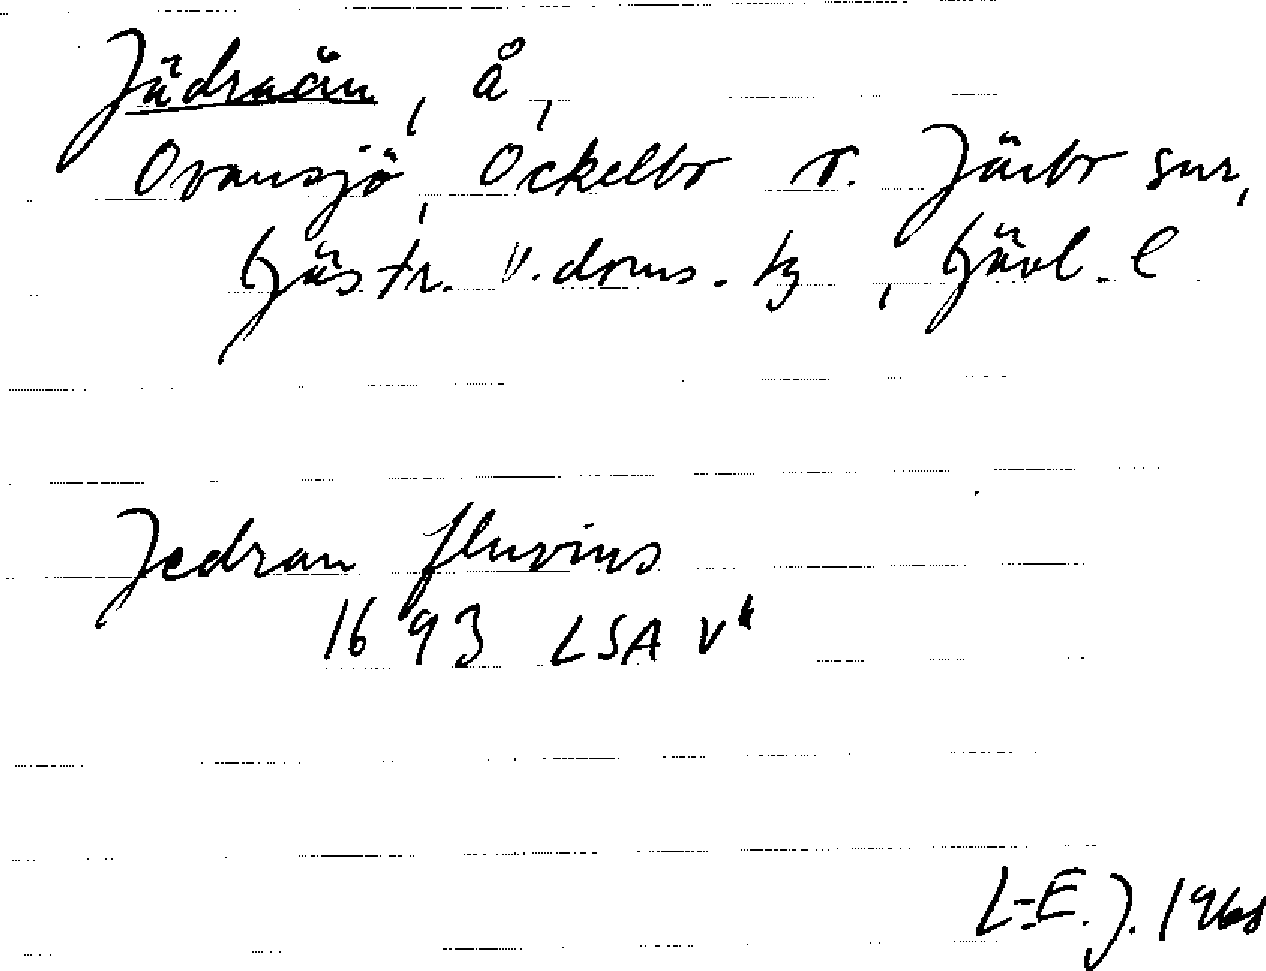 Jädraån, å,
Ovansjö, Ockelbo o. Järbo snr,
Gästr. v. doms. tg, Gävl. l
Jedran fluvius
1693 LSA V
L-E. J. 1968